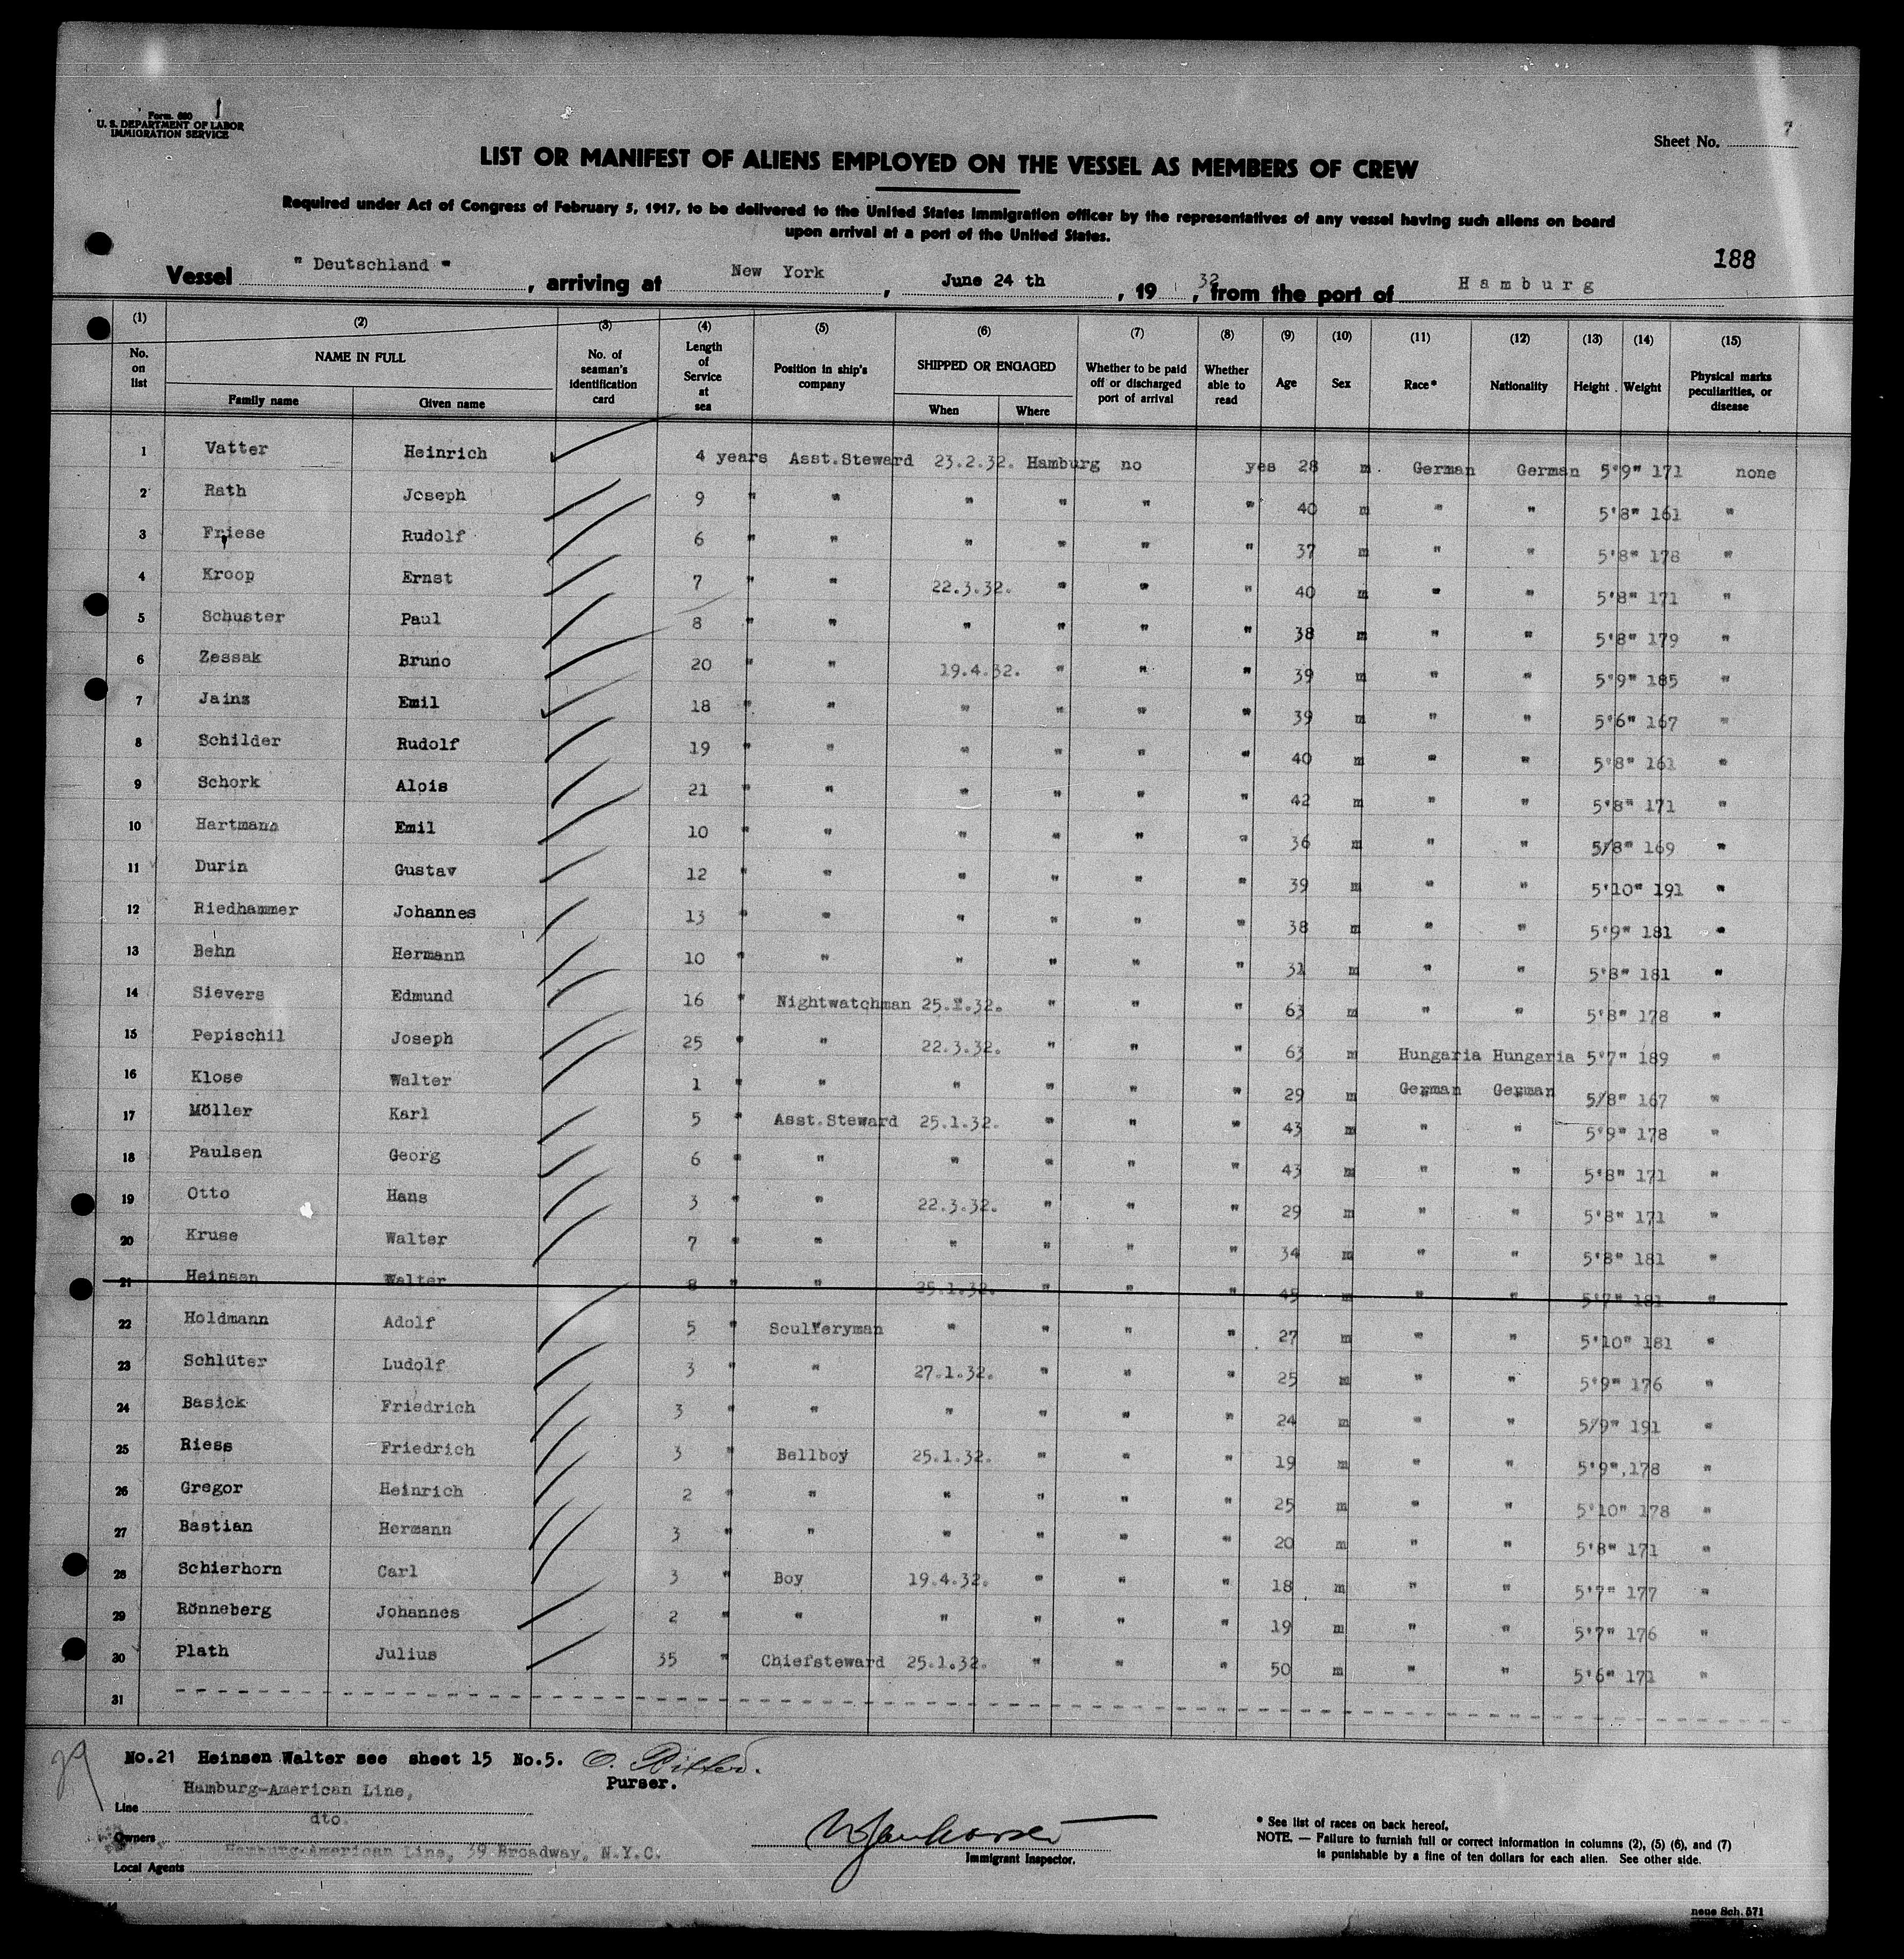 Form 680
U. S. DEPARTMENT OF LABOR
IMMIGRATION SERVICE
Sheet No. 7
LIST OR MANIFEST OF ALIENS EMPLOYED ON THE VESSEL AS MEMBERS OF CREW
Required under Act of Congress of February 5, 1917, to be delivered to the United States immigration officer by the representatives of any vessel having such aliens on board
upon arrival at a port of the United States.
188
Vessel " Deutschland " , arriving at New York , June 24 th , 19 32 , from the port of Hamburg
(1) (2) (3) (4) (5) (6) (7) (8) (9) (10) (11) (12) (13) (14) (15)
No. on list NAME IN FULL Family name Given name No. of seaman's identification card Length of Service at sea Position in ship's company SHIPPED OR ENGAGED When Where Whether to be paid off or discharged port of arrival Whether able to read Age Sex Race* Nationality Height Weight Physical marks peculiarities, or disease
1 Vatter Heinrich 4 years Asst.Steward 23.2.32. Hamburg no yes 28 m. German German 5'9" 171 none
2 Rath Joseph 9 " " " " " " 40 m " " 5'8" 161 "
3 Friese Rudolf 6 " " " " " " 37 m " " 5'8" 178 "
4 Kroop Ernst 7 " " 22.3.32. " " " 40 m " " 5'8" 171 "
5 Schuster Paul 8 " " " " " " 38 m " " 5'8" 179 "
6 Zessak Bruno 20 " " 19.4.32. " " " 39 m " " 5'9" 185 "
7 Jainz Emil 18 " " " " " " 39 m " " 5'6" 167 "
8 Schilder Rudolf 19 " " " " " " 40 m " " 5'8" 161 "
9 Schork Alois 21 " " " " " " 42 m " " 5'8" 171 "
10 Hartmann Emil 10 " " " " " " 36 m " " 5/8" 169 "
11 Durin Gustav 12 " " " " " " 39 m " " 5'10" 191 "
12 Riedhammer Johannes 13 " " " " " " 38 m " " 5'9" 181 "
13 Behn Hermann 10 " " " " " " 31 m " " 5'8" 181 "
14 Sievers Edmund 16 " Nightwatchman 25.1.32. " " " 63 m " " 5'8" 178 "
15 Pepischil Joseph 25 " " 22.3.32. " " " 63 m Hungaria Hungaria 5'7" 189 "
16 Klose Walter 1 " " " " " " 29 m German German 5/8" 167 "
17 Möller Karl 5 " Asst.Steward 25.1.32. " " " 43 m " " 5'9" 178 "
18 Paulsen Georg 6 " " " " " " 43 m " " 5'8" 171 "
19 Otto Hans 3 " " 22.3.32. " " " 29 m " " 5'8" 171 "
20 Kruse Walter 7 " " " " " " 34 m " " 5'8" 181 "
21 Heinsen Walter 8 " " 25.1.32. " " " 45 m " " 5'7" 181 "
22 Holdmann Adolf 5 " Sculleryman " " " " 27 m " " 5'10" 181 "
23 Schlüter Ludolf 3 " " 27.1.32. " " " 25 m " " 5'9" 176 "
24 Basick Friedrich 3 " " " " " " 24 m " " 5/9" 191 "
25 Riess Friedrich 3 " Bellboy 25.1.32. " " " 19 m " " 5'9", 178 "
26 Gregor Heinrich 2 " " " " " " 25 m " " 5'10" 178 "
27 Bastian Hermann 3 " " " " " " 20 m " " 5'8" 171 "
28 Schierhorn Carl 3 " Boy 19.4.32. " " " 18 m " " 5'7" 177 "
29 Rönneberg Johannes 2 " " " " " " 19 m " " 5'7" 176 "
30 Plath Julius 35 " Chiefsteward 25.1.32. " " " 50 m " " 5'6" 171 "
31
29 No.21 Heinsen Walter see sheet 15 No.5. O. Ritter.
Purser.
Line Hamburg-American Line,
Owners dto.
Local Agents Hamburg-American Line, 39 Broadway, N.Y.C.
Immigrant Inspector.
* See list of races on back hereof.
NOTE. — Failure to furnish full or correct information in columns (2), (5) (6), and (7)
is punishable by a fine of ten dollars for each alien. See other side.
neue Sch. 571